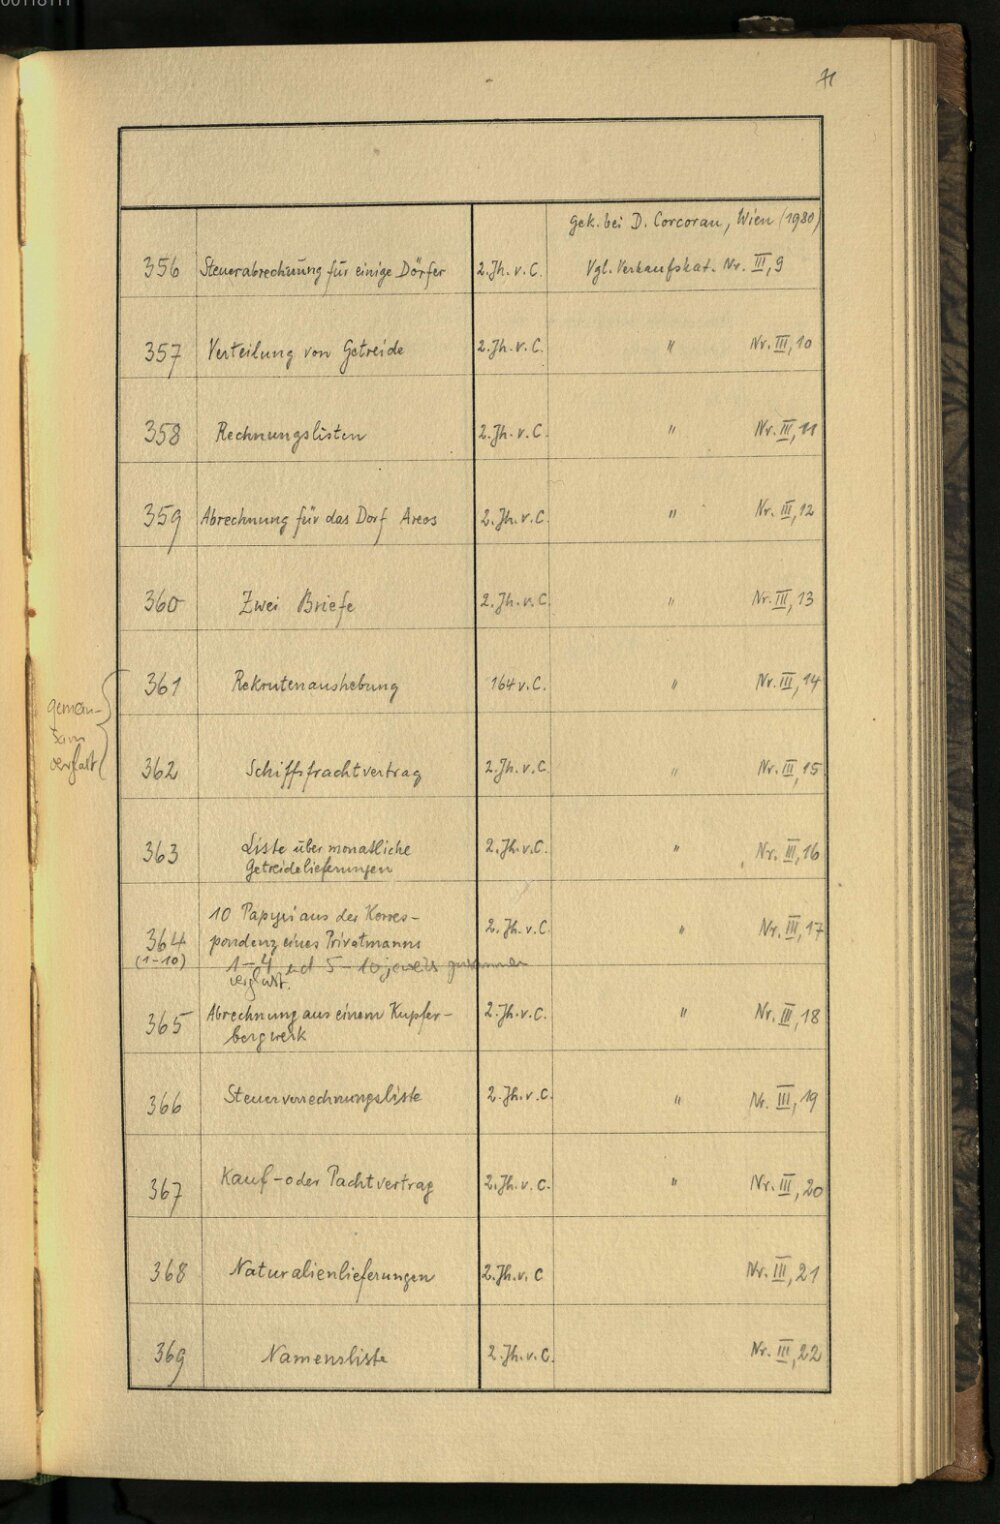 71
gek. bei D. Corcoran, Wien (1980)
356 Steuerabrechnung für einige Dörfer 2.Jh.v.C. Vgl. Verkaufskat. Nr. III,9
357 Verteilung von Getreide 2.Jh.v.C. " Nr. III,10
358 Rechnungslisten 2.Jh.v.C. " Nr. III,11
359 Abrechnung für das Dorf Areos 2.Jh.v.C. " Nr. III,12
360 Zwei Briefe 2.Jh.v.C. " Nr. III,13
361 Rekrutenaushebung 164 v.C. " Nr. III,14
gemein-
sam
verglast
362 Schiffsfrachtvertrag 2.Jh.v.C. " Nr. III,15
363 Liste über monatliche 2.Jh.v.C. " Nr. III,16
Getreidelieferungen
10 Papyri aus der Korres-
364 pondenz eines Privatmanns 2.Jh.v.C. " Nr. III,17
(1-10) 1-4 und 5-10 jeweils zusammen
verglast.
365 Abrechnung aus einem Kupfer- 2.Jh.v.C. " Nr. III,18
bergwerk
366 Steuerverrechnungsliste 2.Jh.v.C. " Nr. III,19
367 Kauf- oder Pachtvertrag 2.Jh.v.C. " Nr. III,20
368 Naturalienlieferungen 2.Jh.v.C Nr. III,21
369 Namensliste 2.Jh.v.C. Nr. III,22